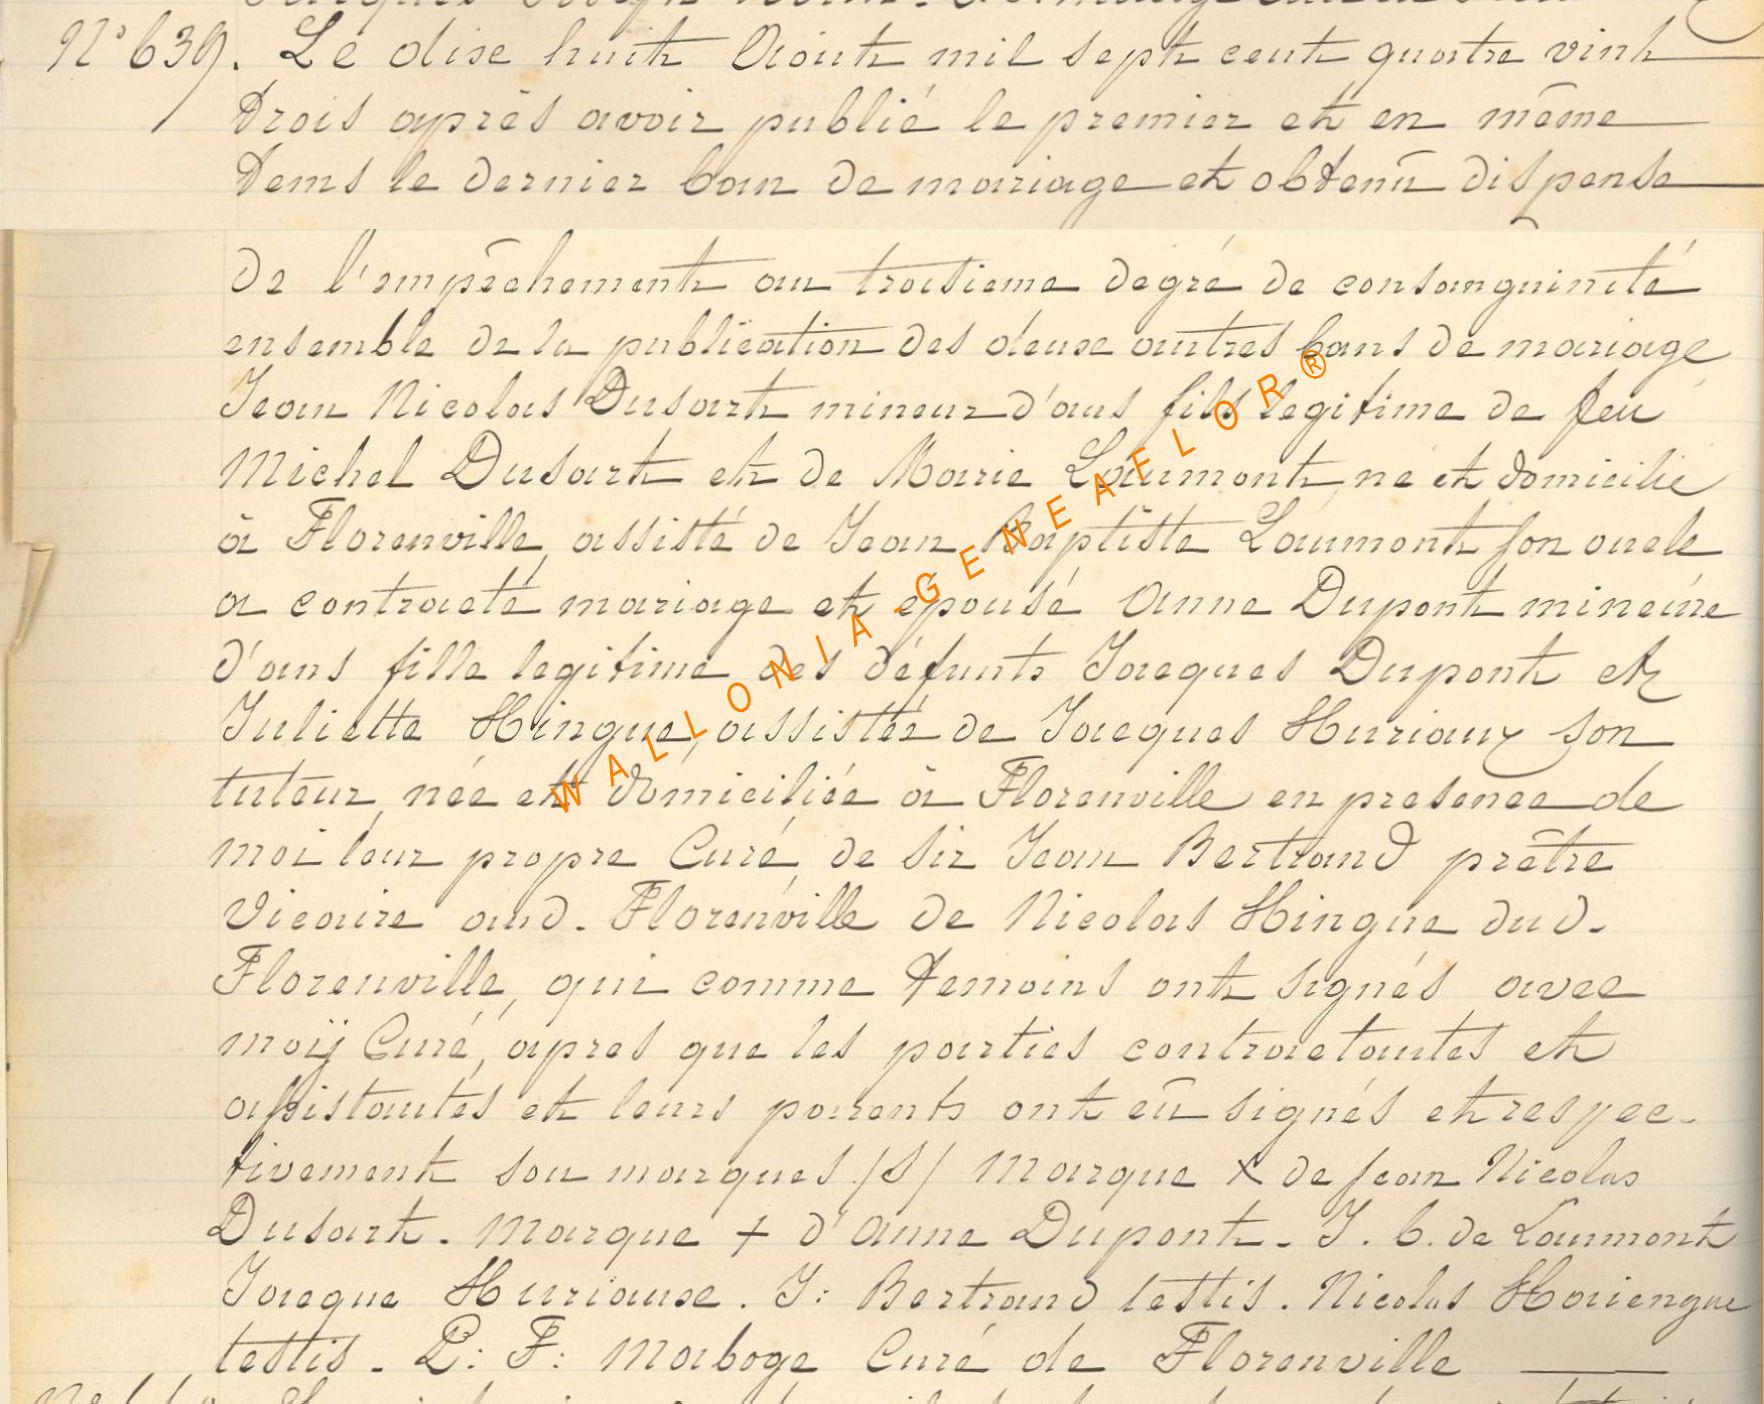 N° 639. Le dixe huit Aoüt mil sept cent quatre vint
trois après avoir publié le premier et en même
tems le dernier ban de mariage et obtenu dispense
de l'empêchement au troisieme degré de consanguinité
ensemble de la publication des deuxe autres bans de mariage
Jean Nicolas Dusart mineur d'ans fils legitime de feu
Michel Dusart et de Marie Laumont, né et domicilié
à Florenville, assisté de Jean Baptiste Laumont son oncle
a contracté mariage et epousé Anne Dupont mineure
d'ans fille legitime des défunts Jacques Dupont et
Juliette Hingue, assistée de Jacques Huriaux son
tuteur, née et domiciliée à Florenville en presence de
moi leur propre Curé, de Sir Jean Bertrand prêtre
Vicaire aud. Florenville de Nicolas Hingue dud.
Florenville, qui comme temoins ont signés avec
moÿ Curé, apres que les parties contractantes et
assistantes et leurs parents ont eü signés et respec-
tivement sou marqués /S/ Marque x de Jean Nicolas
Dusart. Marque + d'Anne Dupont. J. b. de Laumont
Jacque Huriauxe. J: Bertrand testis. Nicolas Haiengue
testis. P: F: Maboge Curé de Florenville
WALLONIA GENEAFLOR®